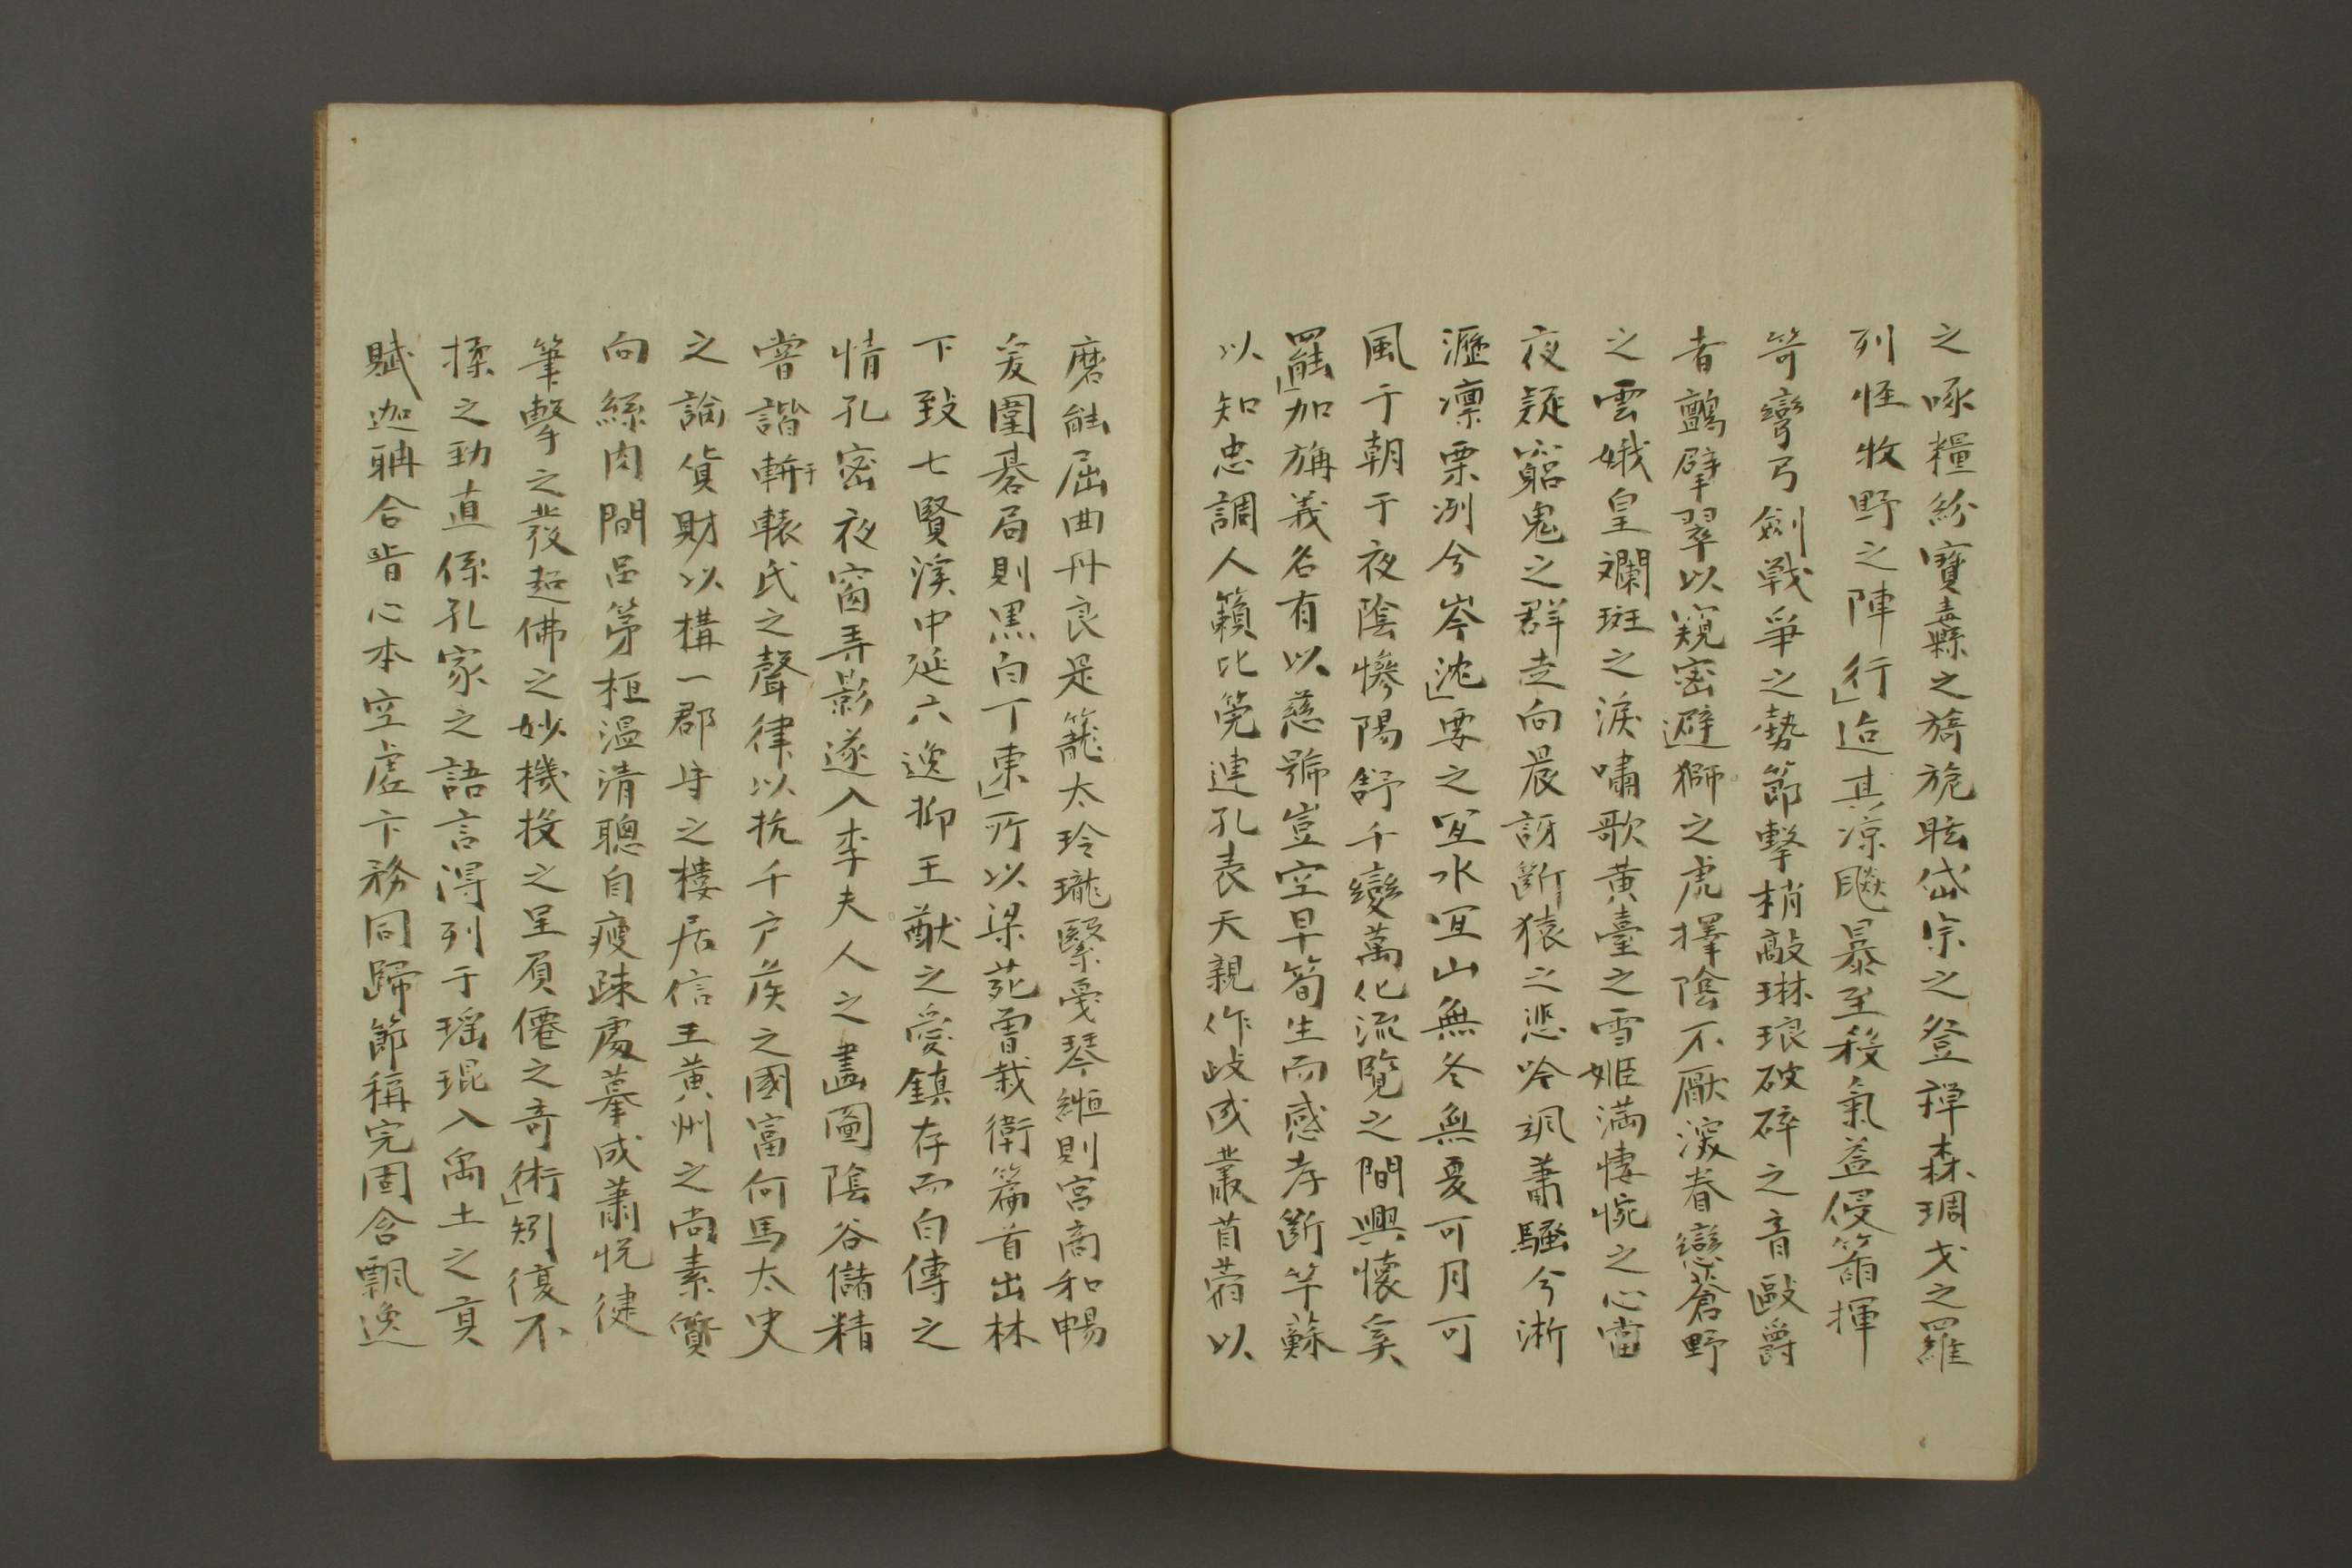 之啄糧紛寶纛之旖旎眩岱宗之登禪森琱戈之羅
列恠牧野之陣行迨其凉飈暴至殺氣益侵箭揮
笴彎弓劍戰爭之勢節擊梢敲琳琅破碎之音毆爵
者鸇擘翠以窺密避獅之虎擇陰不厭深眷戀蒼野
之雲娥皇斕斑之淚嘯歌黄臺之雪姬滿悽惋之心當
夜疑窮鬼之群走向晨訝斷猿之悲吟颯蕭騷兮淅
瀝凛栗冽兮岑沈要之宜水宜山無冬無夏可月可
風于朝于夜陰慘陽舒千變萬化流覽之間興懷矣
罷加旃義名有以慈號豈空早筍生而感孝斷竿蘇
以知忠調人籟比筦連孔表天親作歧成叢苜蓿以
磨能屈曲丹良是籠太玲瓏緊戞琴絙則宮商和暢
爰圍碁局則黒白丁東所以梁苑曾栽衛篇首出林
下致七賢溪中延六逸抑王猷之愛鎮存而白傳之
情孔密夜窗弄影遂入李夫人之畫圖陰谷儲精
嘗諧軒轅氏之聲律以抗千户侯之國富何馬太史
之論貨財以構一郡守之樓居信王黄州之尚素質
向絲肉間品第桓温清聰自瘦疎處摹成蕭悦徤
筆擊之發起佛之妙機投之呈屓僊之奇術矧復不
揉之勁直係孔家之語言得列于瑶琨入禹土之貢
賦迦聃合旨心本空虚卞務同歸節稱完固含飄逸